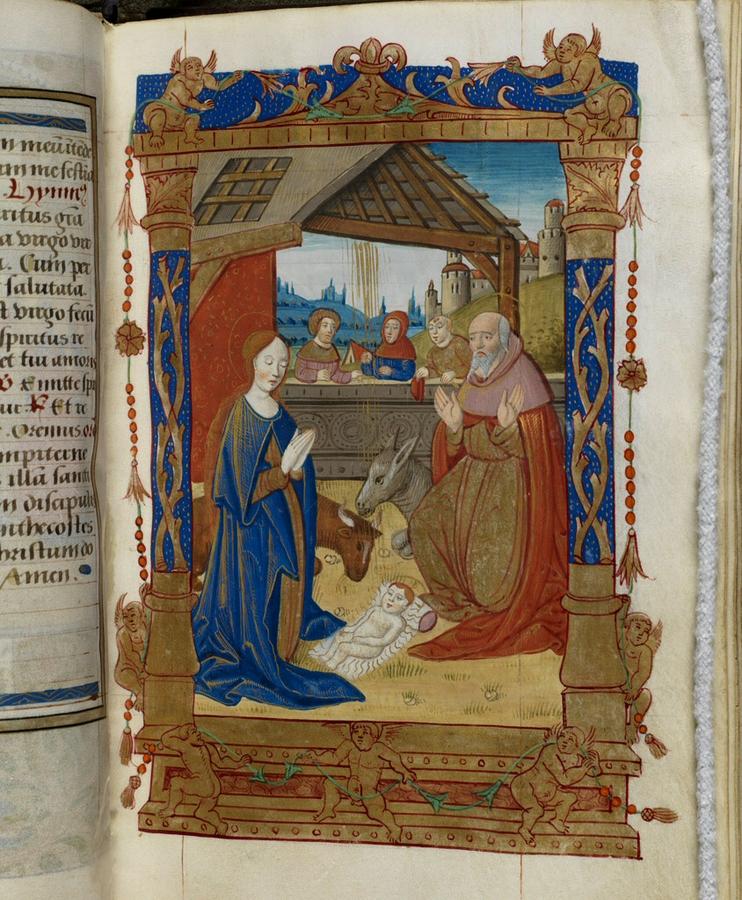 n meū ītēde
um me festīa
Hymnꝰ
ritus grā
a virgo vir
. Cum per
salutata.
st virgo fecū
spiritus re
et tui amoris
℣ Emitte spi
tur ℟ Et re
. Oremus. o
mpiterne
s illā sancti
m discipul
nthecostes
hristum do
Amen.